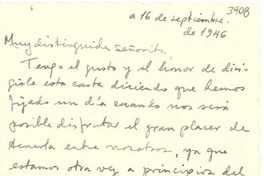 3908
a 16 de septiembre
de 1946
Muy distinguida señorita,
Tengo el gusto y el honor de diri-
girle esta carta diciendo que hemos
fijado un día cuando nos será
posible disfrutar el gran placer de
tenerla entre nosotros, ya que
estamos otra vez a principios del